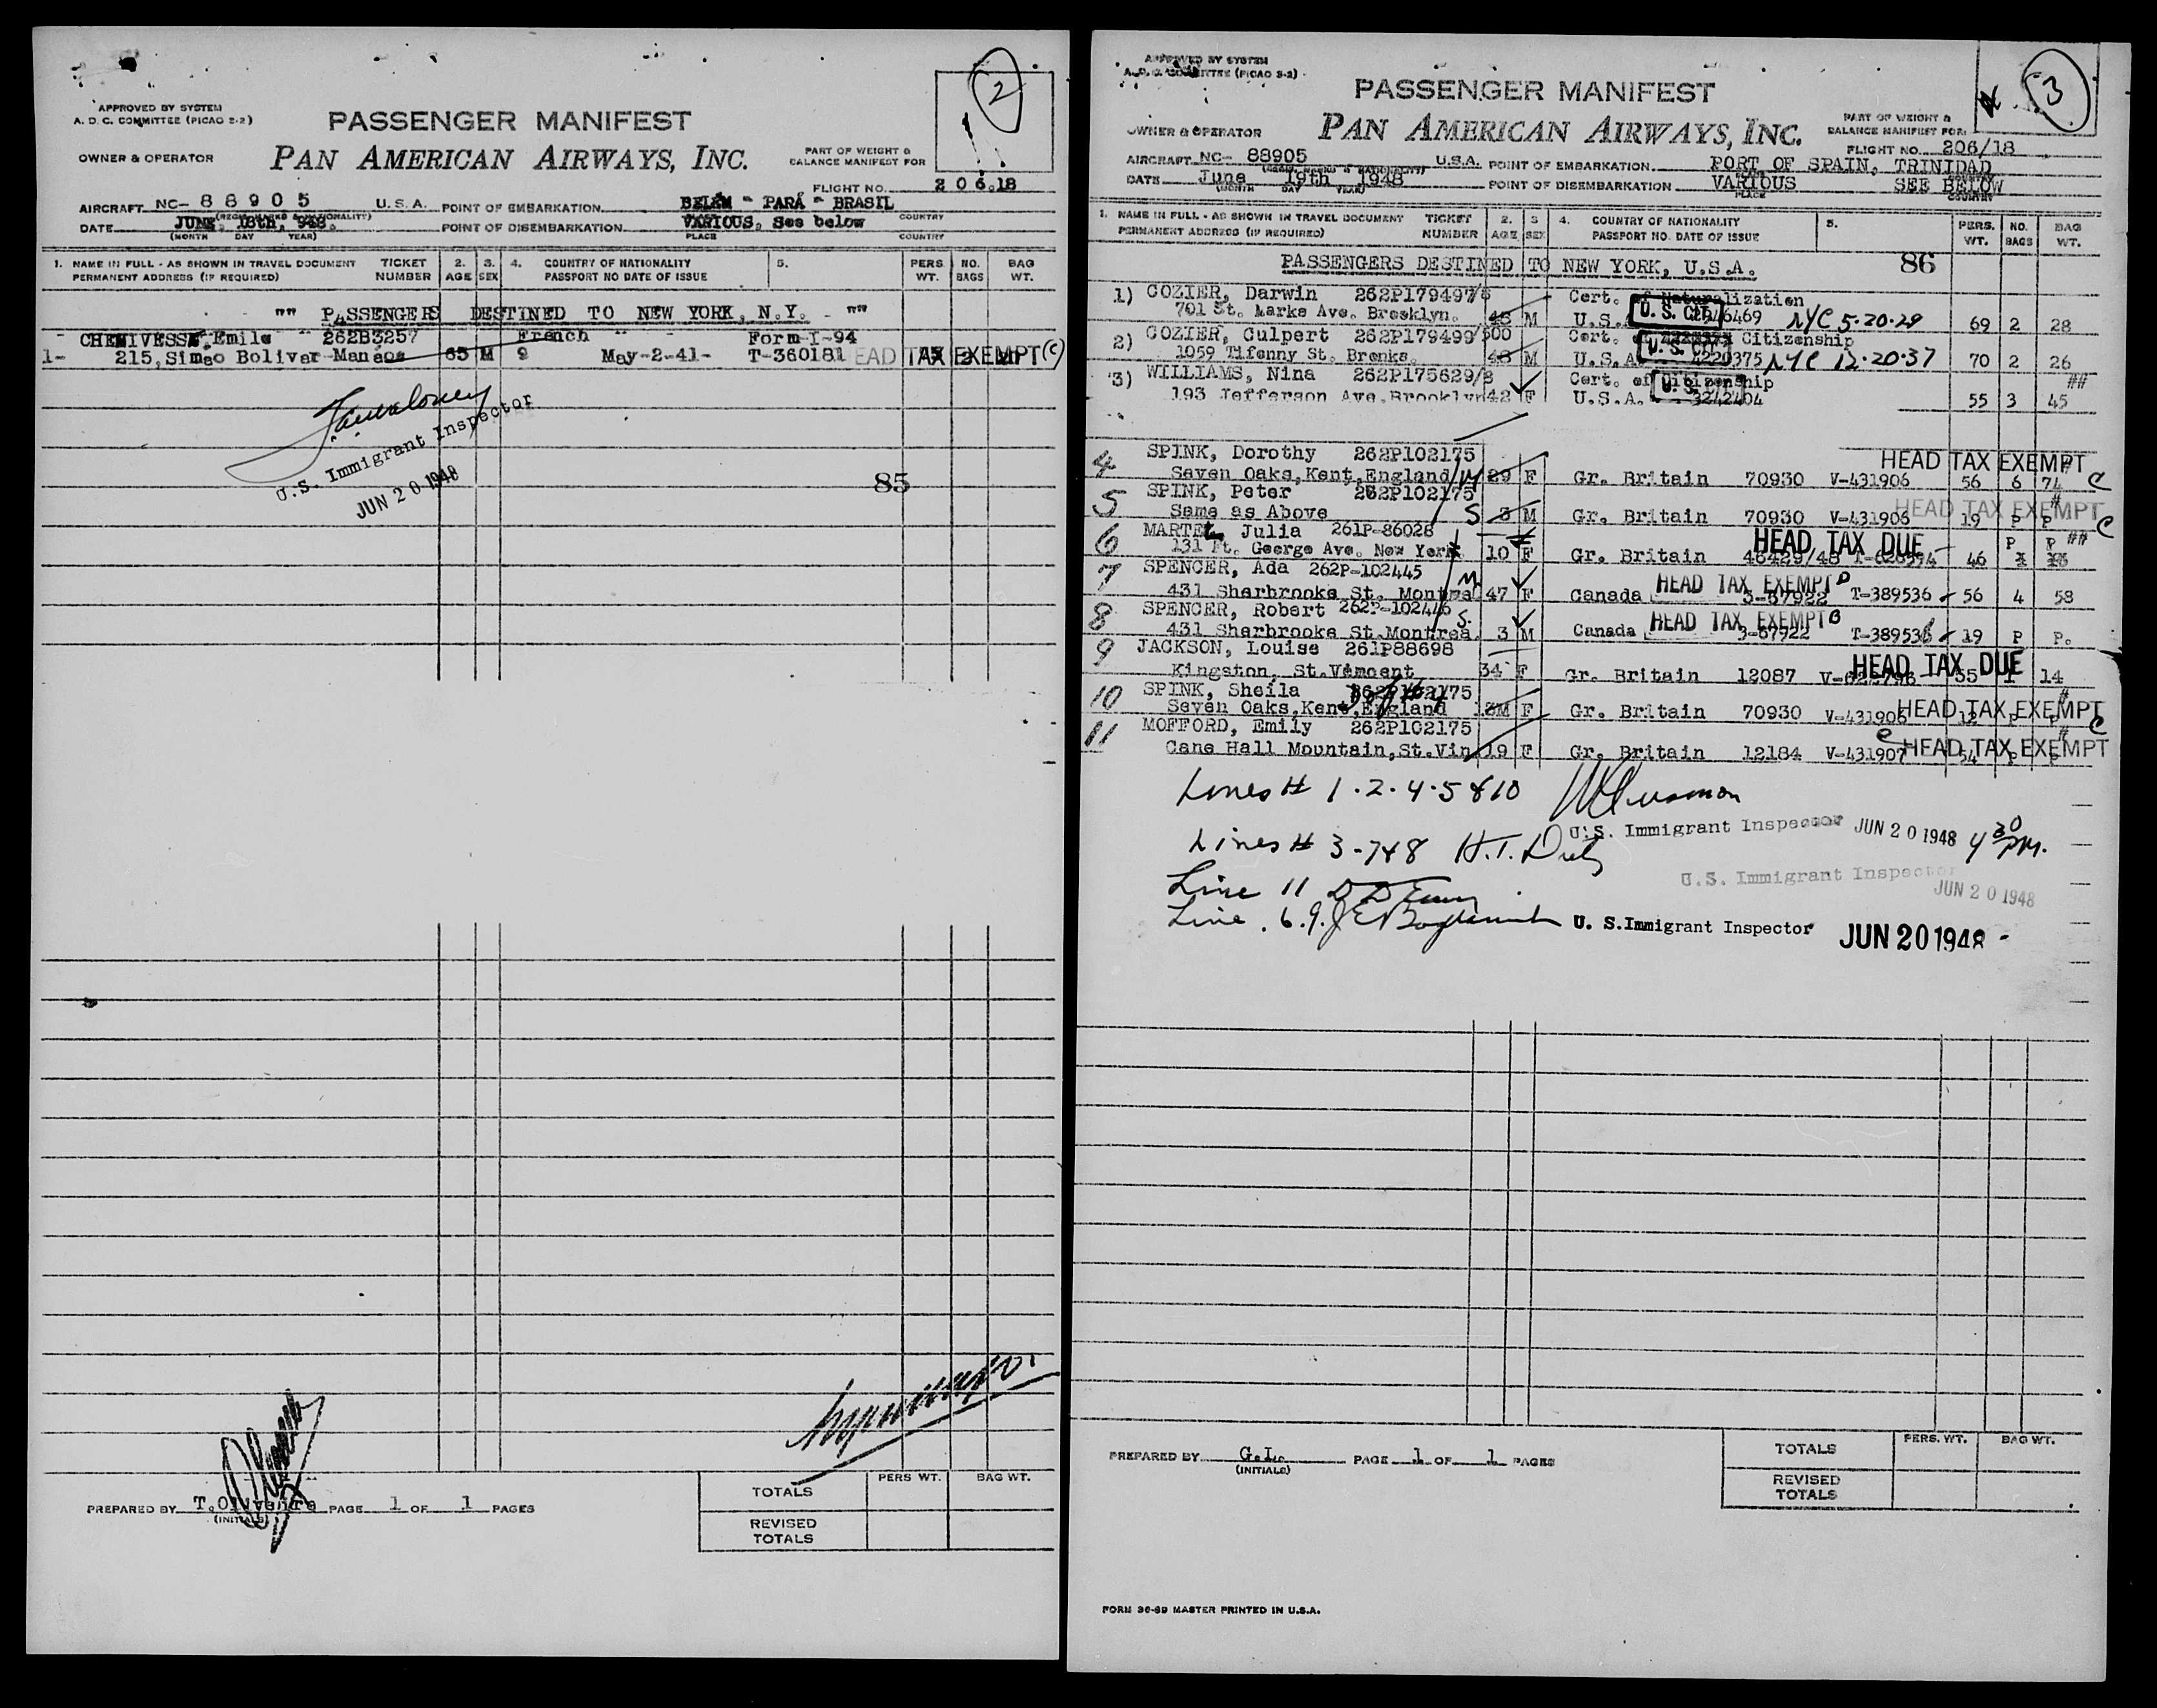 APPROVED BY SYSTEM
A. D. C. COMMITTEE (PICAO S-2)
2
PASSENGER MANIFEST
OWNER & OPERATOR
PAN AMERICAN AIRWAYS, INC.
PART OF WEIGHT &
BALANCE MANIFEST FOR
FLIGHT NO. 206.18
AIRCRAFT NC- 88905 U.S.A. POINT OF EMBARKATION BELEM - PARÁ - BRASIL
DATE JUNE, 18th, 948. POINT OF DISEMBARKATION VARIOUS, See below
(MONTH DAY YEAR) PLACE COUNTRY
1. NAME IN FULL - AS SHOWN IN TRAVEL DOCUMENT TICKET 2. 3. 4. COUNTRY OF NATIONALITY 5. PERS. NO. BAG
PERMANENT ADDRESS (IF REQUIRED) NUMBER AGE SEX PASSPORT NO DATE OF ISSUE WT. BAGS WT.
"" PASSENGERS DESTINED TO NEW YORK, N.Y. ""
Emile 262B3257 French Form-I-94
1- 215, Simao Bolivar-Manaos 65 M May-2-41- T-360181 HEAD TAX EXEMPT (c)
U.S. Immigrant Inspector
JUN 20 1948
85
PREPARED BY T.Oliveira PAGE 1 OF 1 PAGES
(INITIALS)
PERS WT. BAG WT.
TOTALS
REVISED
TOTALS
APPROVED BY SYSTEM
A. D. C. COMMITTEE (PICAO S-2)
3
PASSENGER MANIFEST
OWNER & OPERATOR
PAN AMERICAN AIRWAYS, INC.
PART OF WEIGHT &
BALANCE MANIFEST FOR:
FLIGHT NO. 206/18
AIRCRAFT NC- 88905 U.S.A. POINT OF EMBARKATION PORT OF SPAIN, TRINIDAD
DATE June 19th 1948 POINT OF DISEMBARKATION VARIOUS SEE BELOW
(MONTH DAY YEAR) PLACE COUNTRY
1. NAME IN FULL - AS SHOWN IN TRAVEL DOCUMENT TICKET 2. 3 4. COUNTRY OF NATIONALITY 5. PERS. NO. BAG
PERMANENT ADDRESS (IF REQUIRED) NUMBER AGE SEX PASSPORT NO. DATE OF ISSUE WT. BAGS WT.
PASSENGERS DESTINED TO NEW YORK, U.S.A. 86
1) COZIER, Darwin 262P179497/8 Cert. of Naturalization
701 St. Marks Ave. Brooklyn. 48 M U.S. U.S. CIT. NYC 5-20-29 69 2 28
2) COZIER, Culpert 262P179499/500 Cert. Citizenship
1059 Tifenny St. Bronks. 43 M U.S.A. 4220375 NYC 12-20-37 70 2 26
3) WILLIAMS, Nina 262P175629/8 Cert. of Citizenship ##
193 Jefferson Ave. Brooklyn 42 F U.S.A. U.S. CIT. 3242404 55 3 45
4 SPINK, Dorothy 262P102175 HEAD TAX EXEMPT
Seven Oaks, Kent, England M 29 F Gr. Britain 70930 V-431906 56 6 74 C
5 SPINK, Peter 262P102175 HEAD TAX EXEMPT
Same as Above S 3 M Gr. Britain 70930 V-431906 19 P P C
6 MARTEL Julia 261P-86028 HEAD TAX DUE P P ##
131 Ft. George Ave. New York 10 F Gr. Britain 46429/48 46
7 SPENCER, Ada 262P-102445 M HEAD TAX EXEMPT
431 Sharbrooke St. Montreal 47 F Canada 3-67922 T-389536 56 4 58
8 SPENCER, Robert 262P-102446 S. HEAD TAX EXEMPT
431 Sharbrooke St. Montrea. 3 M Canada 3-67922 T-389536 19 P P.
9 JACKSON, Louise 261P88698 HEAD TAX DUE
Kingston, St. Vincent 34 F Gr. Britain 12087 55 1 14
10 SPINK, Sheila 262P102175 HEAD TAX EXEMPT #
Seven Oaks, Kent, England F Gr. Britain 70930 V-431906 12 P P C
11 MOFFORD, Emily 262P102175 HEAD TAX EXEMPT #
Cane Hall Mountain, St. Vin 19 F Gr. Britain 12184 V-431907 54 P P
Lines # 1.2.4.5 & 10
U.S. Immigrant Inspector JUN 20 1948 4 30 PM.
Lines # 3-7 & 8
U.S. Immigrant Inspector
JUN 20 1948
Line 11
Line 6.9. U. S. Immigrant Inspector JUN 20 1948
PREPARED BY PAGE 1 OF 1 PAGES
(INITIALS)
PERS. WT. BAG WT.
TOTALS
REVISED
TOTALS
FORM 36-89 MASTER PRINTED IN U.S.A.